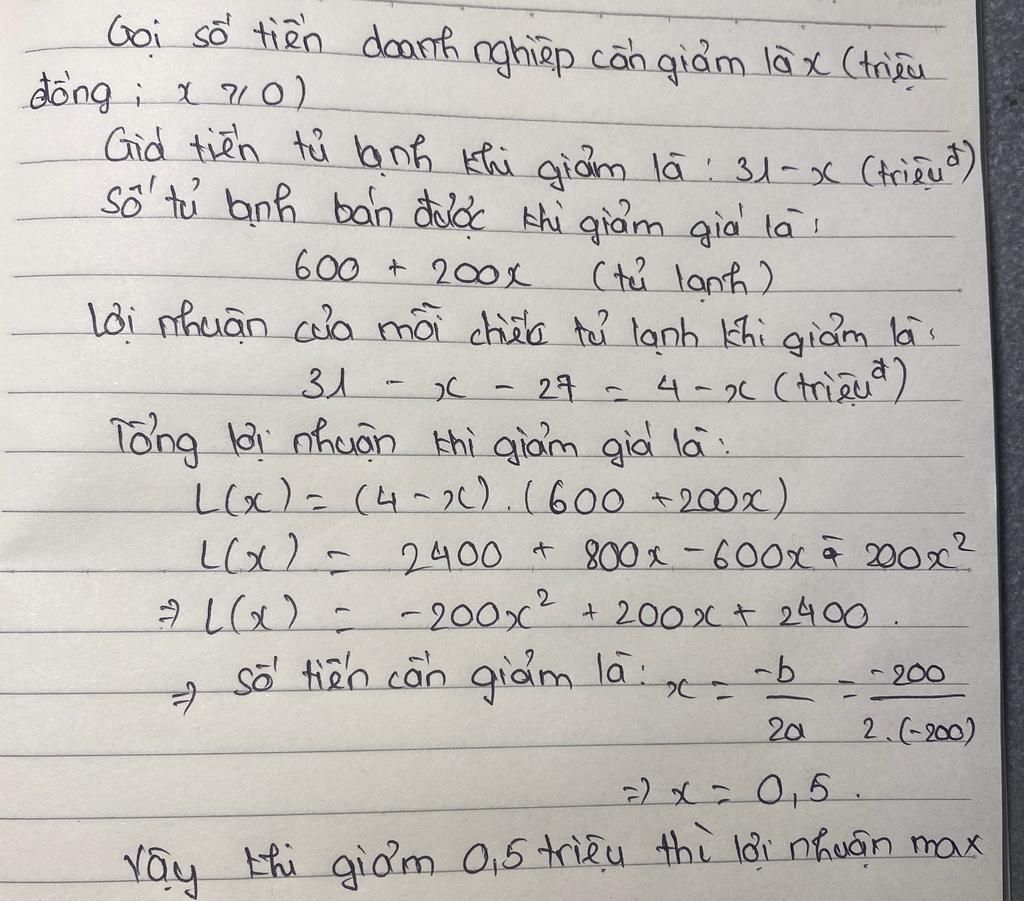 Gọi số tiền doanh nghiệp cần giảm là x (triệu
đồng ; x ⩾ 0)
Giá tiền tủ lạnh khi giảm là : 31 - x (triệu đ)
Số tủ lạnh bán được khi giảm giá là :
600 + 200x (tủ lạnh)
Lợi nhuận của mỗi chiếc tủ lạnh khi giảm là :
31 - x - 27 = 4 - x (triệu đ)
Tổng lợi nhuận khi giảm giá là :
L(x) = (4 - x) . (600 + 200x)
L(x) = 2400 + 800x - 600x - 200x²
⇒ L(x) = -200x² + 200x + 2400 .
⇒ số tiền cần giảm là : x = -b/2a = -200/2.(-200)
⇒ x = 0,5 .
Vậy khi giảm 0,5 triệu thì lợi nhuận max